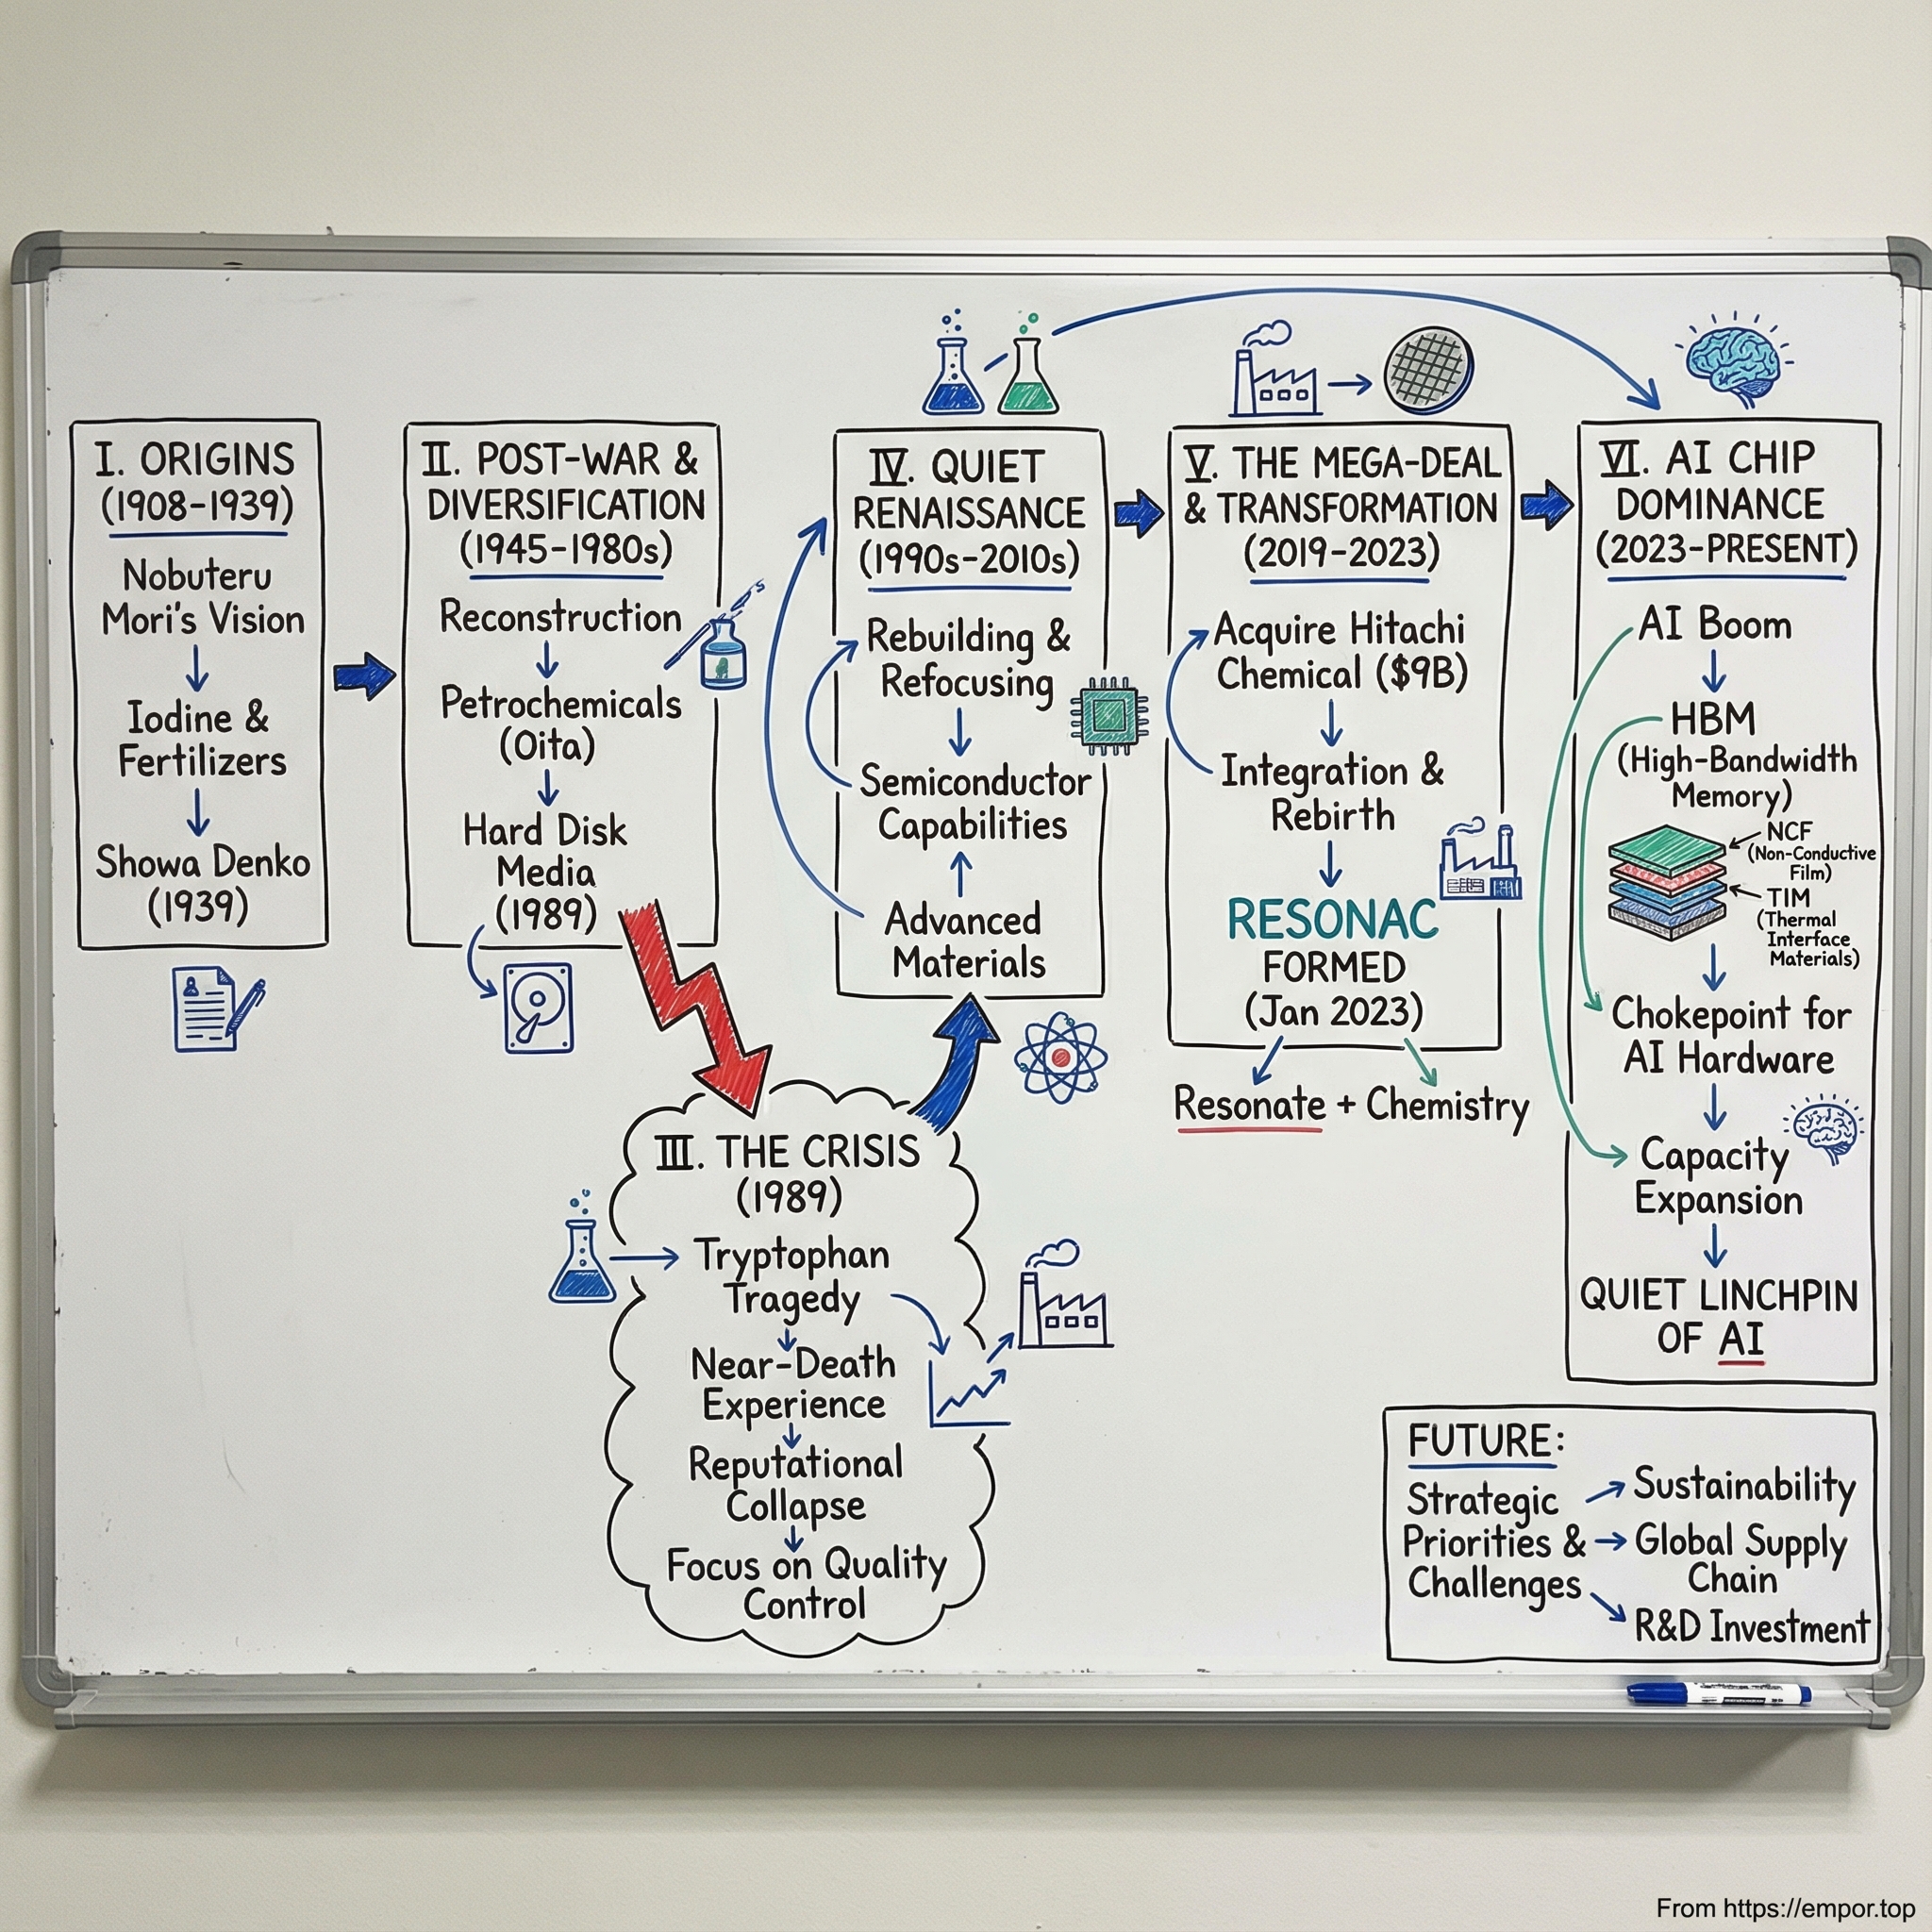 I. ORIGINS
(1908-1939)
Nobuteru
Mori's Vision
Iodine &
Fertilizers
Showa Denko
(1939)
II. POST-WAR &
DIVERSIFICATION
(1945-1980s)
Reconstruction
Petrochemicals
(Oita)
Hard Disk
Media
(1989)
III. THE CRISIS
(1989)
Tryptophan
Tragedy
Near-Death
Experience
Reputational
Collapse
Focus on Quality
Control
IV. QUIET
RENAISSANCE
(1990s-2010s)
Rebuilding &
Refocusing
Semiconductor
Capabilities
Advanced
Materials
V. THE MEGA-DEAL
& TRANSFORMATION
(2019-2023)
Acquire Hitachi
Chemical ($9B)
Integration &
Rebirth
RESONAC
FORMED
(Jan 2023)
Resonate + Chemistry
VI. AI CHIP
DOMINANCE
(2023-PRESENT)
AI Boom
HBM
(High-Bandwidth
Memory)
NCF
(Non-Conductive
Film)
TIM
(Thermal
Interface
Materials)
Chokepoint for
AI Hardware
Capacity
Expansion
QUIET LINCHPIN
OF AI
FUTURE:
Strategic
Priorities &
Challenges
Sustainability
Global Supply
Chain
R&D Investment
From https://empor.top